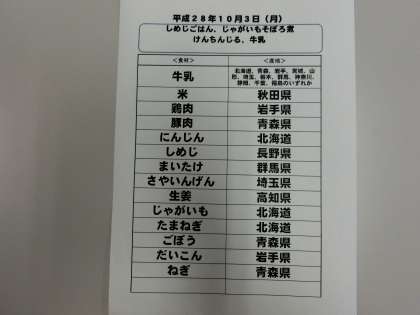 平成28年10月3日（月）
しめじごはん、じゃがいもそぼろ煮
けんちんじる、牛乳
＜食材＞ ＜産地＞
牛乳 北海道、青森、岩手、宮城、山
形、埼玉、栃木、群馬、神奈川、
静岡、千葉、福島のいずれか
米 秋田県
鶏肉 岩手県
豚肉 青森県
にんじん 北海道
しめじ 長野県
まいたけ 群馬県
さやいんげん 埼玉県
生姜 高知県
じゃがいも 北海道
たまねぎ 北海道
ごぼう 青森県
だいこん 岩手県
ねぎ 青森県